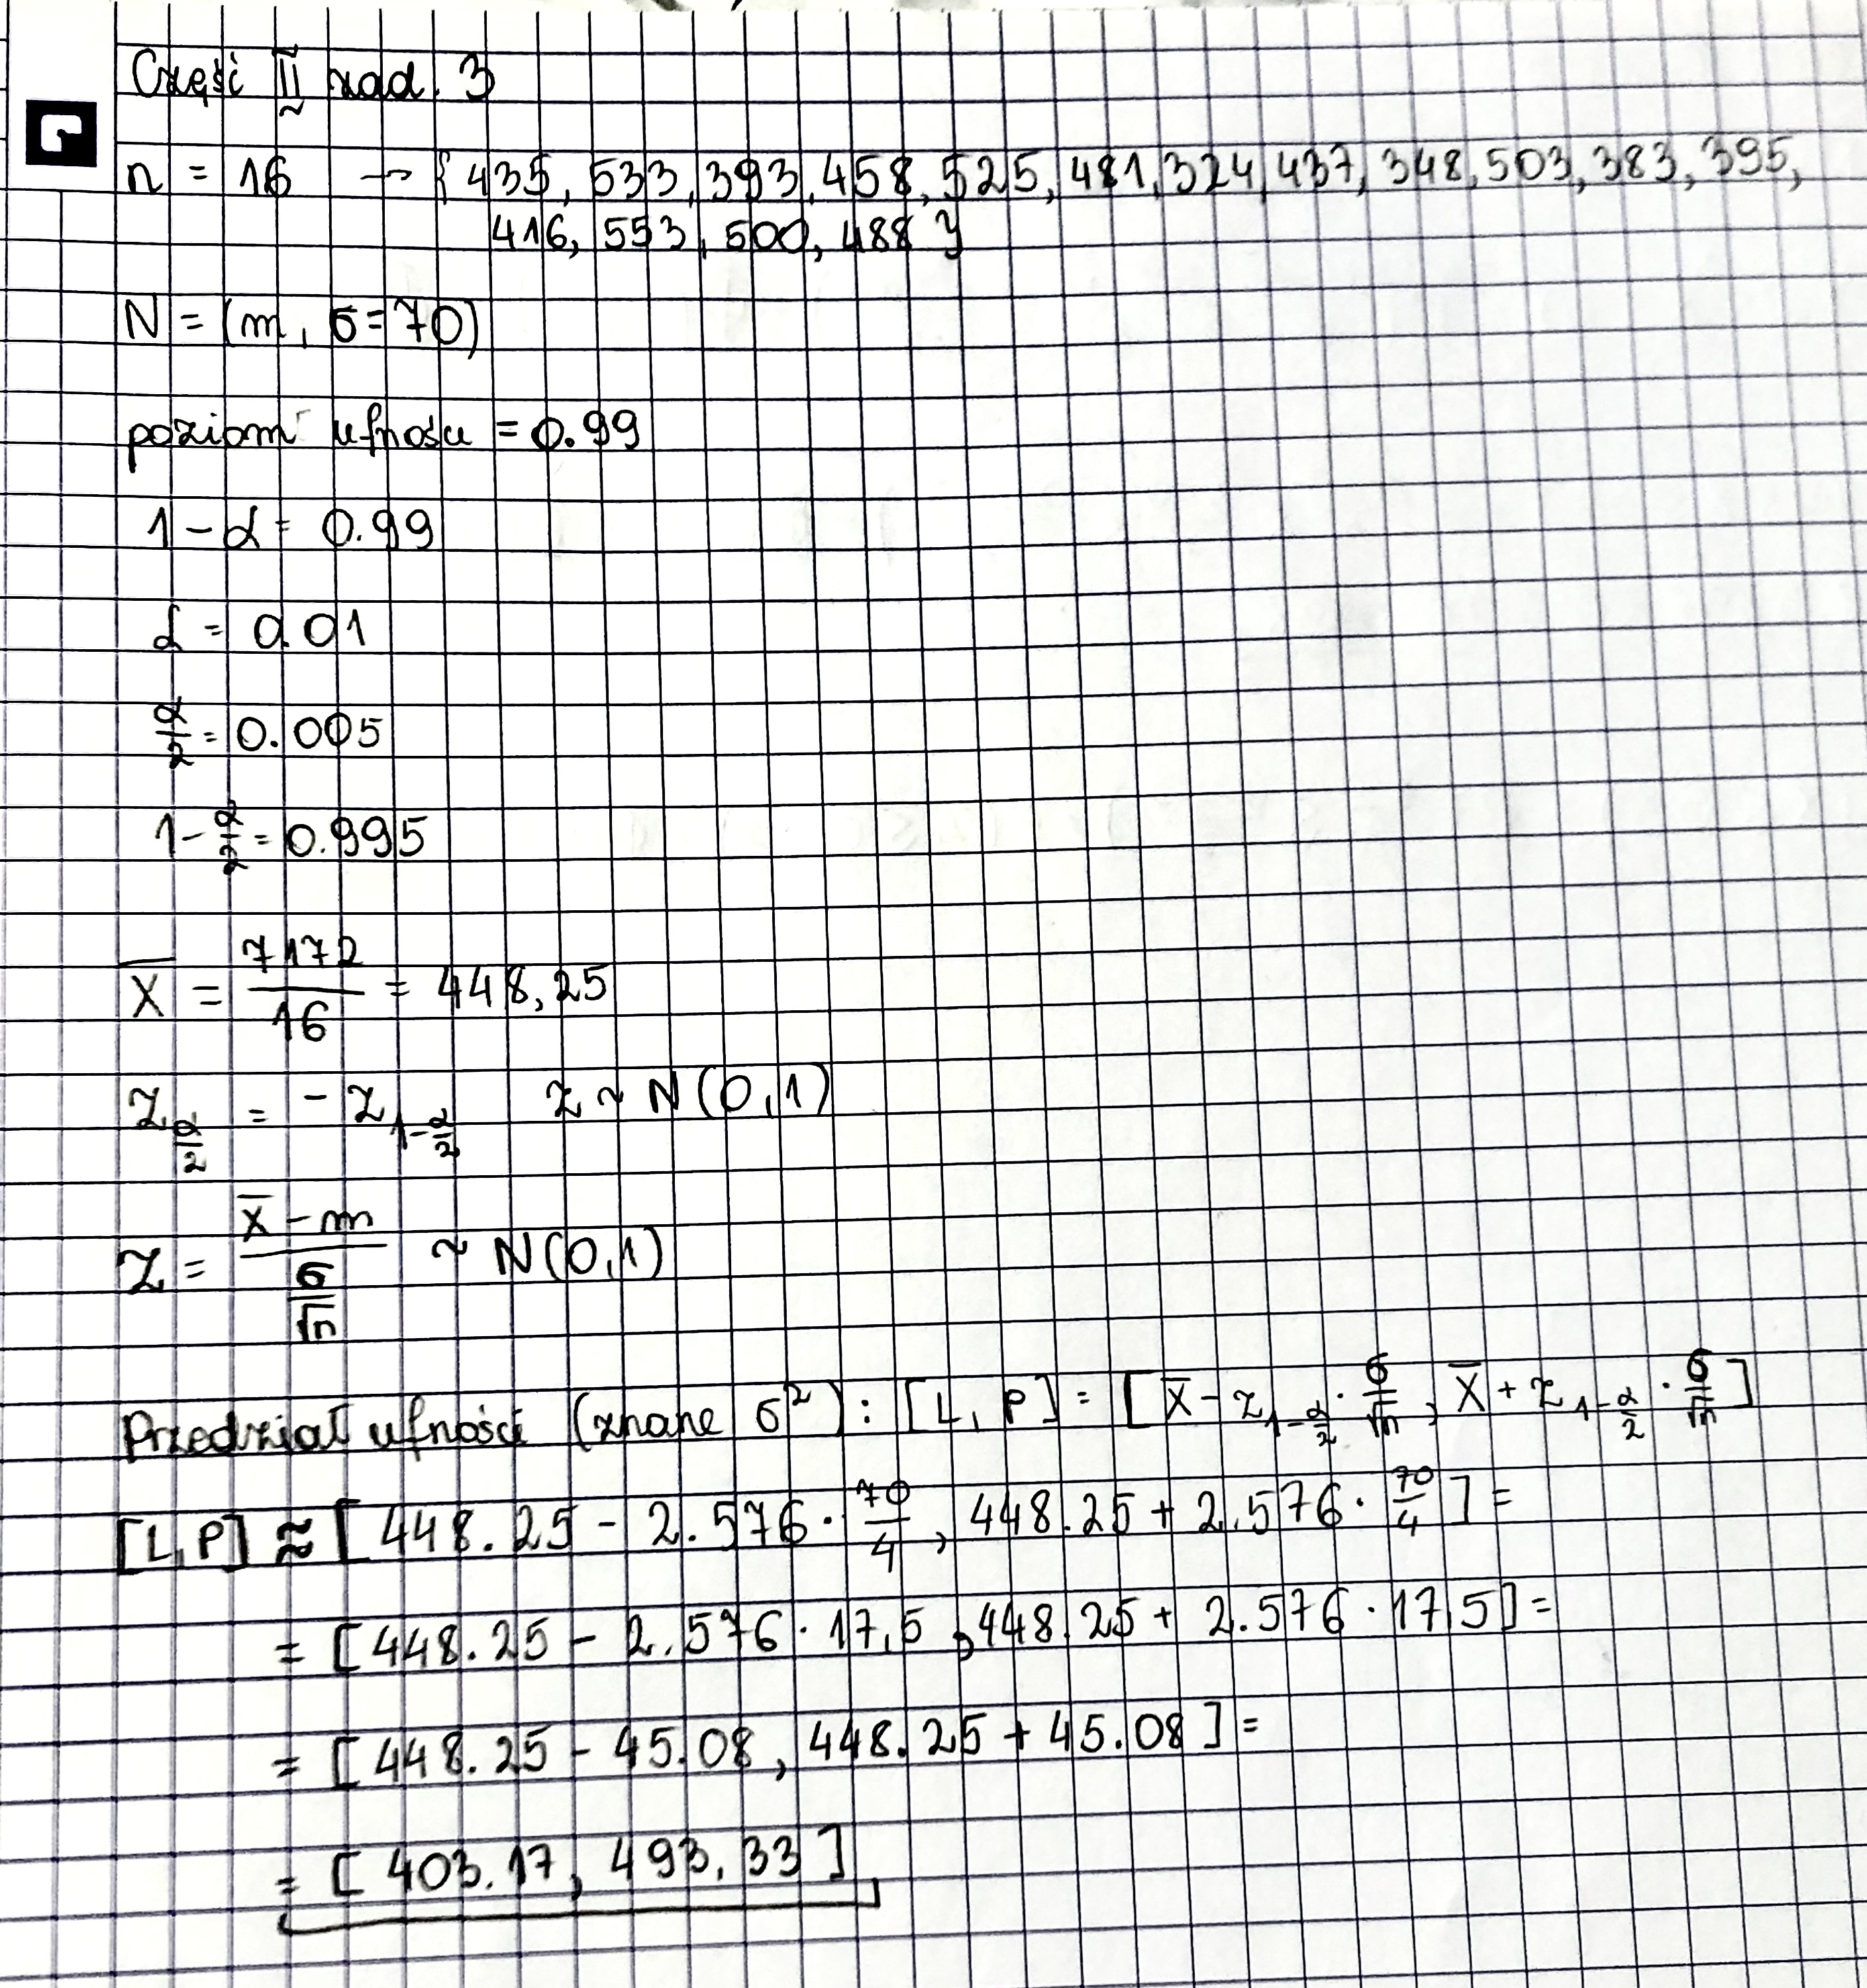 Część II zad. 3
n = 16 → { 435, 533, 393, 458, 525, 481, 324, 437, 348, 503, 383, 395,
416, 553, 500, 488 }
N = (m, σ = 70)
poziom ufności = 0.99
1 - α = 0.99
α = 0.01
α/2 = 0.005
1 - α/2 = 0.995
X̄ = 7172/16 = 448,25
z_{α/2} = - z_{1-α/2} z ~ N(0,1)
Z = (X̄ - m)/(σ/√n) ~ N(0,1)
Przedział ufności (znane σ²) : [L, P] = [ X̄ - z_{1-α/2} · σ/√n , X̄ + z_{1-α/2} · σ/√n ]
[L, P] ≈ [ 448.25 - 2.576 · 70/4 , 448.25 + 2.576 · 70/4 ] =
= [ 448.25 - 2.576 · 17.5 , 448.25 + 2.576 · 17.5 ] =
= [ 448.25 - 45.08 , 448.25 + 45.08 ] =
= [ 403.17 , 493.33 ]